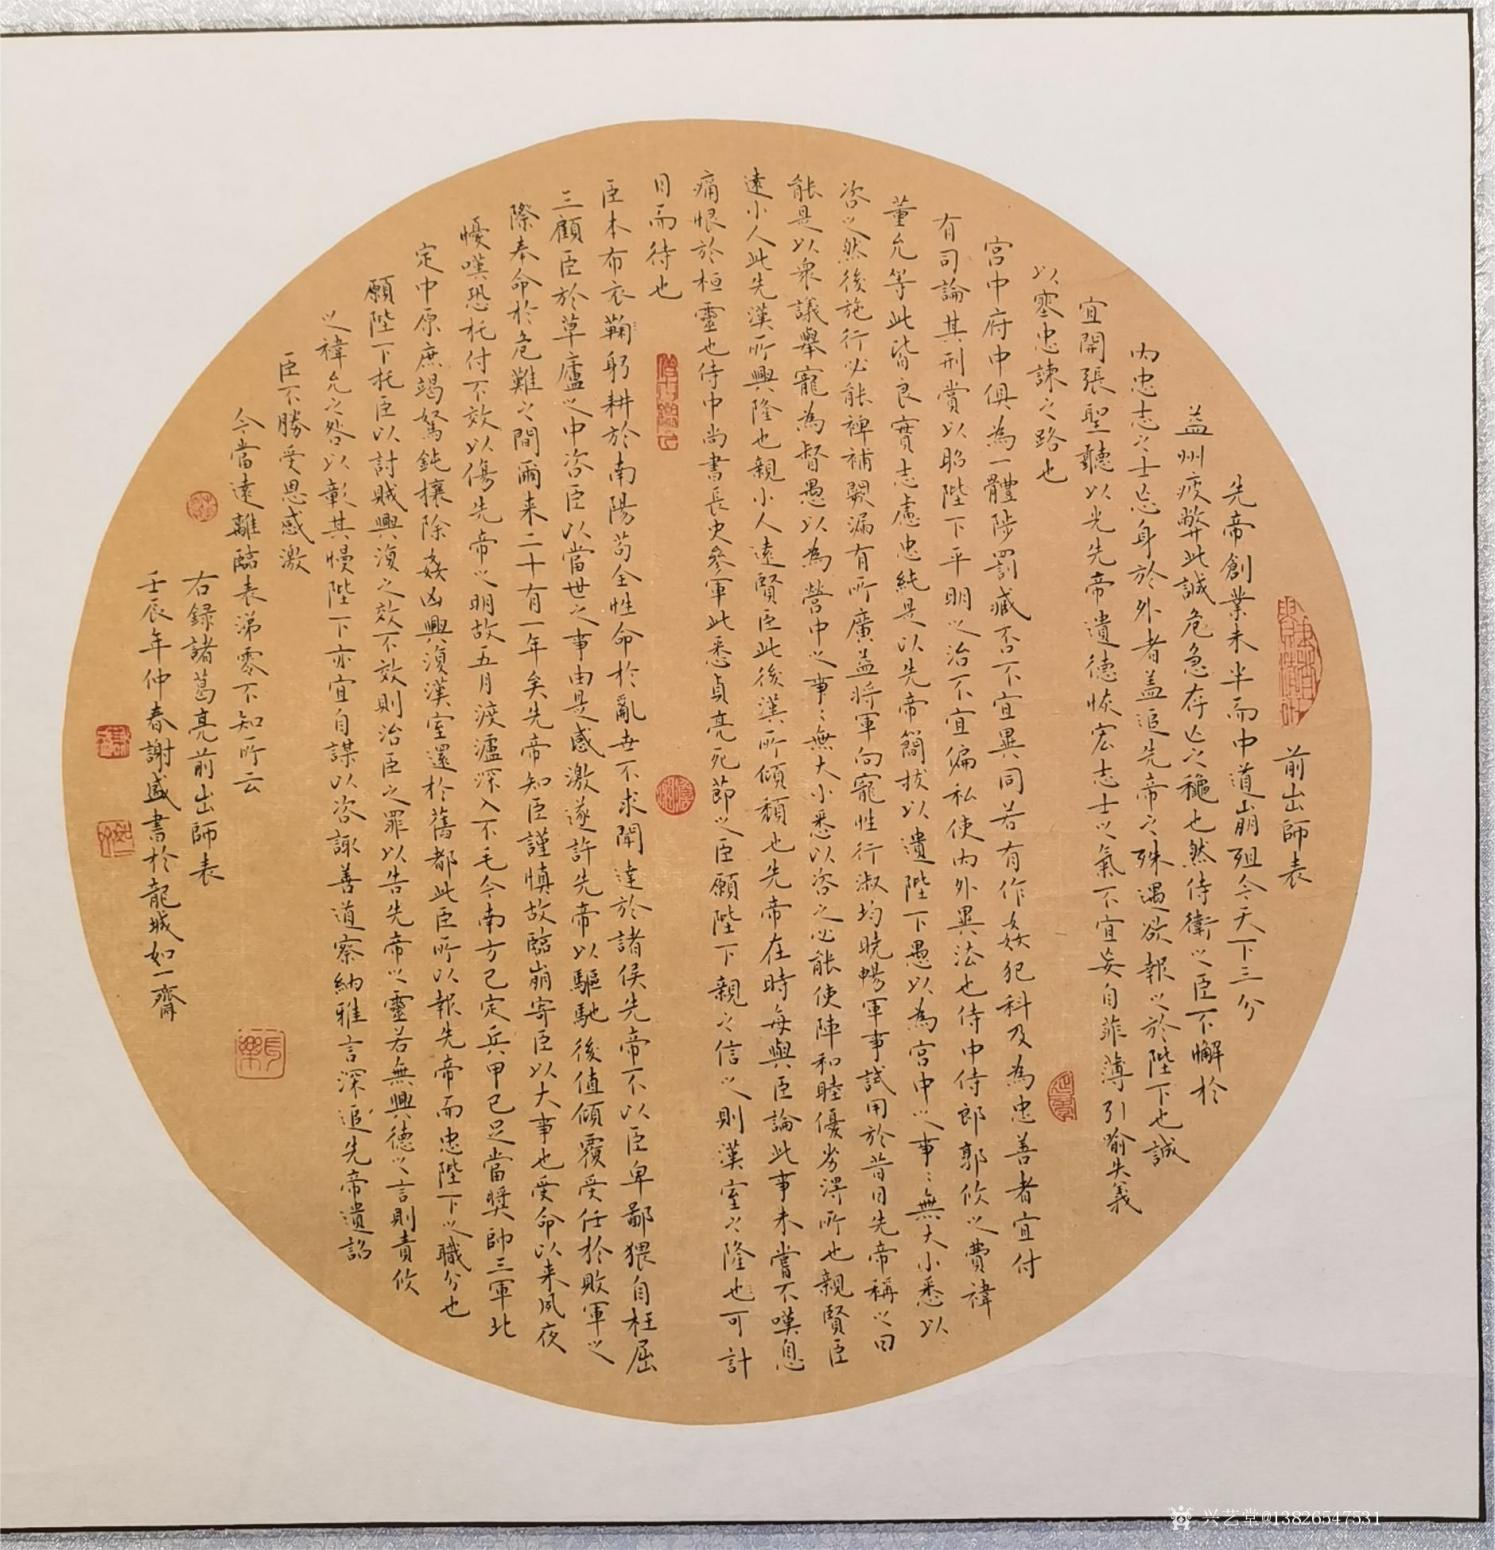 前出師表
先帝創業未半而中道崩殂今天下三分
益州疲弊此誠危急存亡之穐也然侍衛之臣不懈於
內忠志之士忘身於外者蓋追先帝之殊遇欲報之於陛下也誠
宜開張聖聽以光先帝遺德恢宏志士之氣不宜妄自菲薄引喻失義
以塞忠諫之路也
宮中府中俱為一體陟罰臧否不宜異同若有作姦犯科及為忠善者宜付
有司論其刑賞以昭陛下平明之治不宜偏私使內外異法也侍中侍郎郭攸之費禕
董允等此皆良實志慮忠純是以先帝簡拔以遺陛下愚以為宮中之事〻無大小悉以
咨之然後施行必能裨補闕漏有所廣益將軍向寵性行淑均曉暢軍事試用於昔日先帝稱之曰
能是以衆議舉寵為督愚以為營中之事〻無大小悉以咨之必能使陣和睦優劣得所也親賢臣
遠小人此先漢所興隆也親小人遠賢臣此後漢所傾頹也先帝在時每與臣論此事未嘗不嘆息
痛恨於桓靈也侍中尚書長史參軍此悉貞亮死節之臣願陛下親之信之則漢室之隆也可計
日而待也
臣本布衣鞠躬耕於南陽苟全性命於亂世不求聞達於諸侯先帝不以臣卑鄙猥自枉屈
三顧臣於草廬之中咨臣以當世之事由是感激遂許先帝以驅馳後值傾覆受任於敗軍之
際奉命於危難之間爾来二十有一年矣先帝知臣謹慎故臨崩寄臣以大事也受命以来夙夜
憂嘆恐托付不效以傷先帝之明故五月渡瀘深入不毛今南方已定兵甲已足當奬帥三軍北
定中原庶竭駑鈍攘除姦凶興復漢室還於舊都此臣所以報先帝而忠陛下之職分也
願陛下托臣以討賊興復之效不效則治臣之罪以告先帝之靈若無興德之言則責攸
之禕允之咎以彰其慢陛下亦宜自謀以咨諏善道察納雅言深追先帝遺詔
臣不勝受恩感激
今當遠離臨表涕零不知所云
右録諸葛亮前出師表
壬辰年仲春謝盛書於龍城如一齋
兴艺堂@13826547531